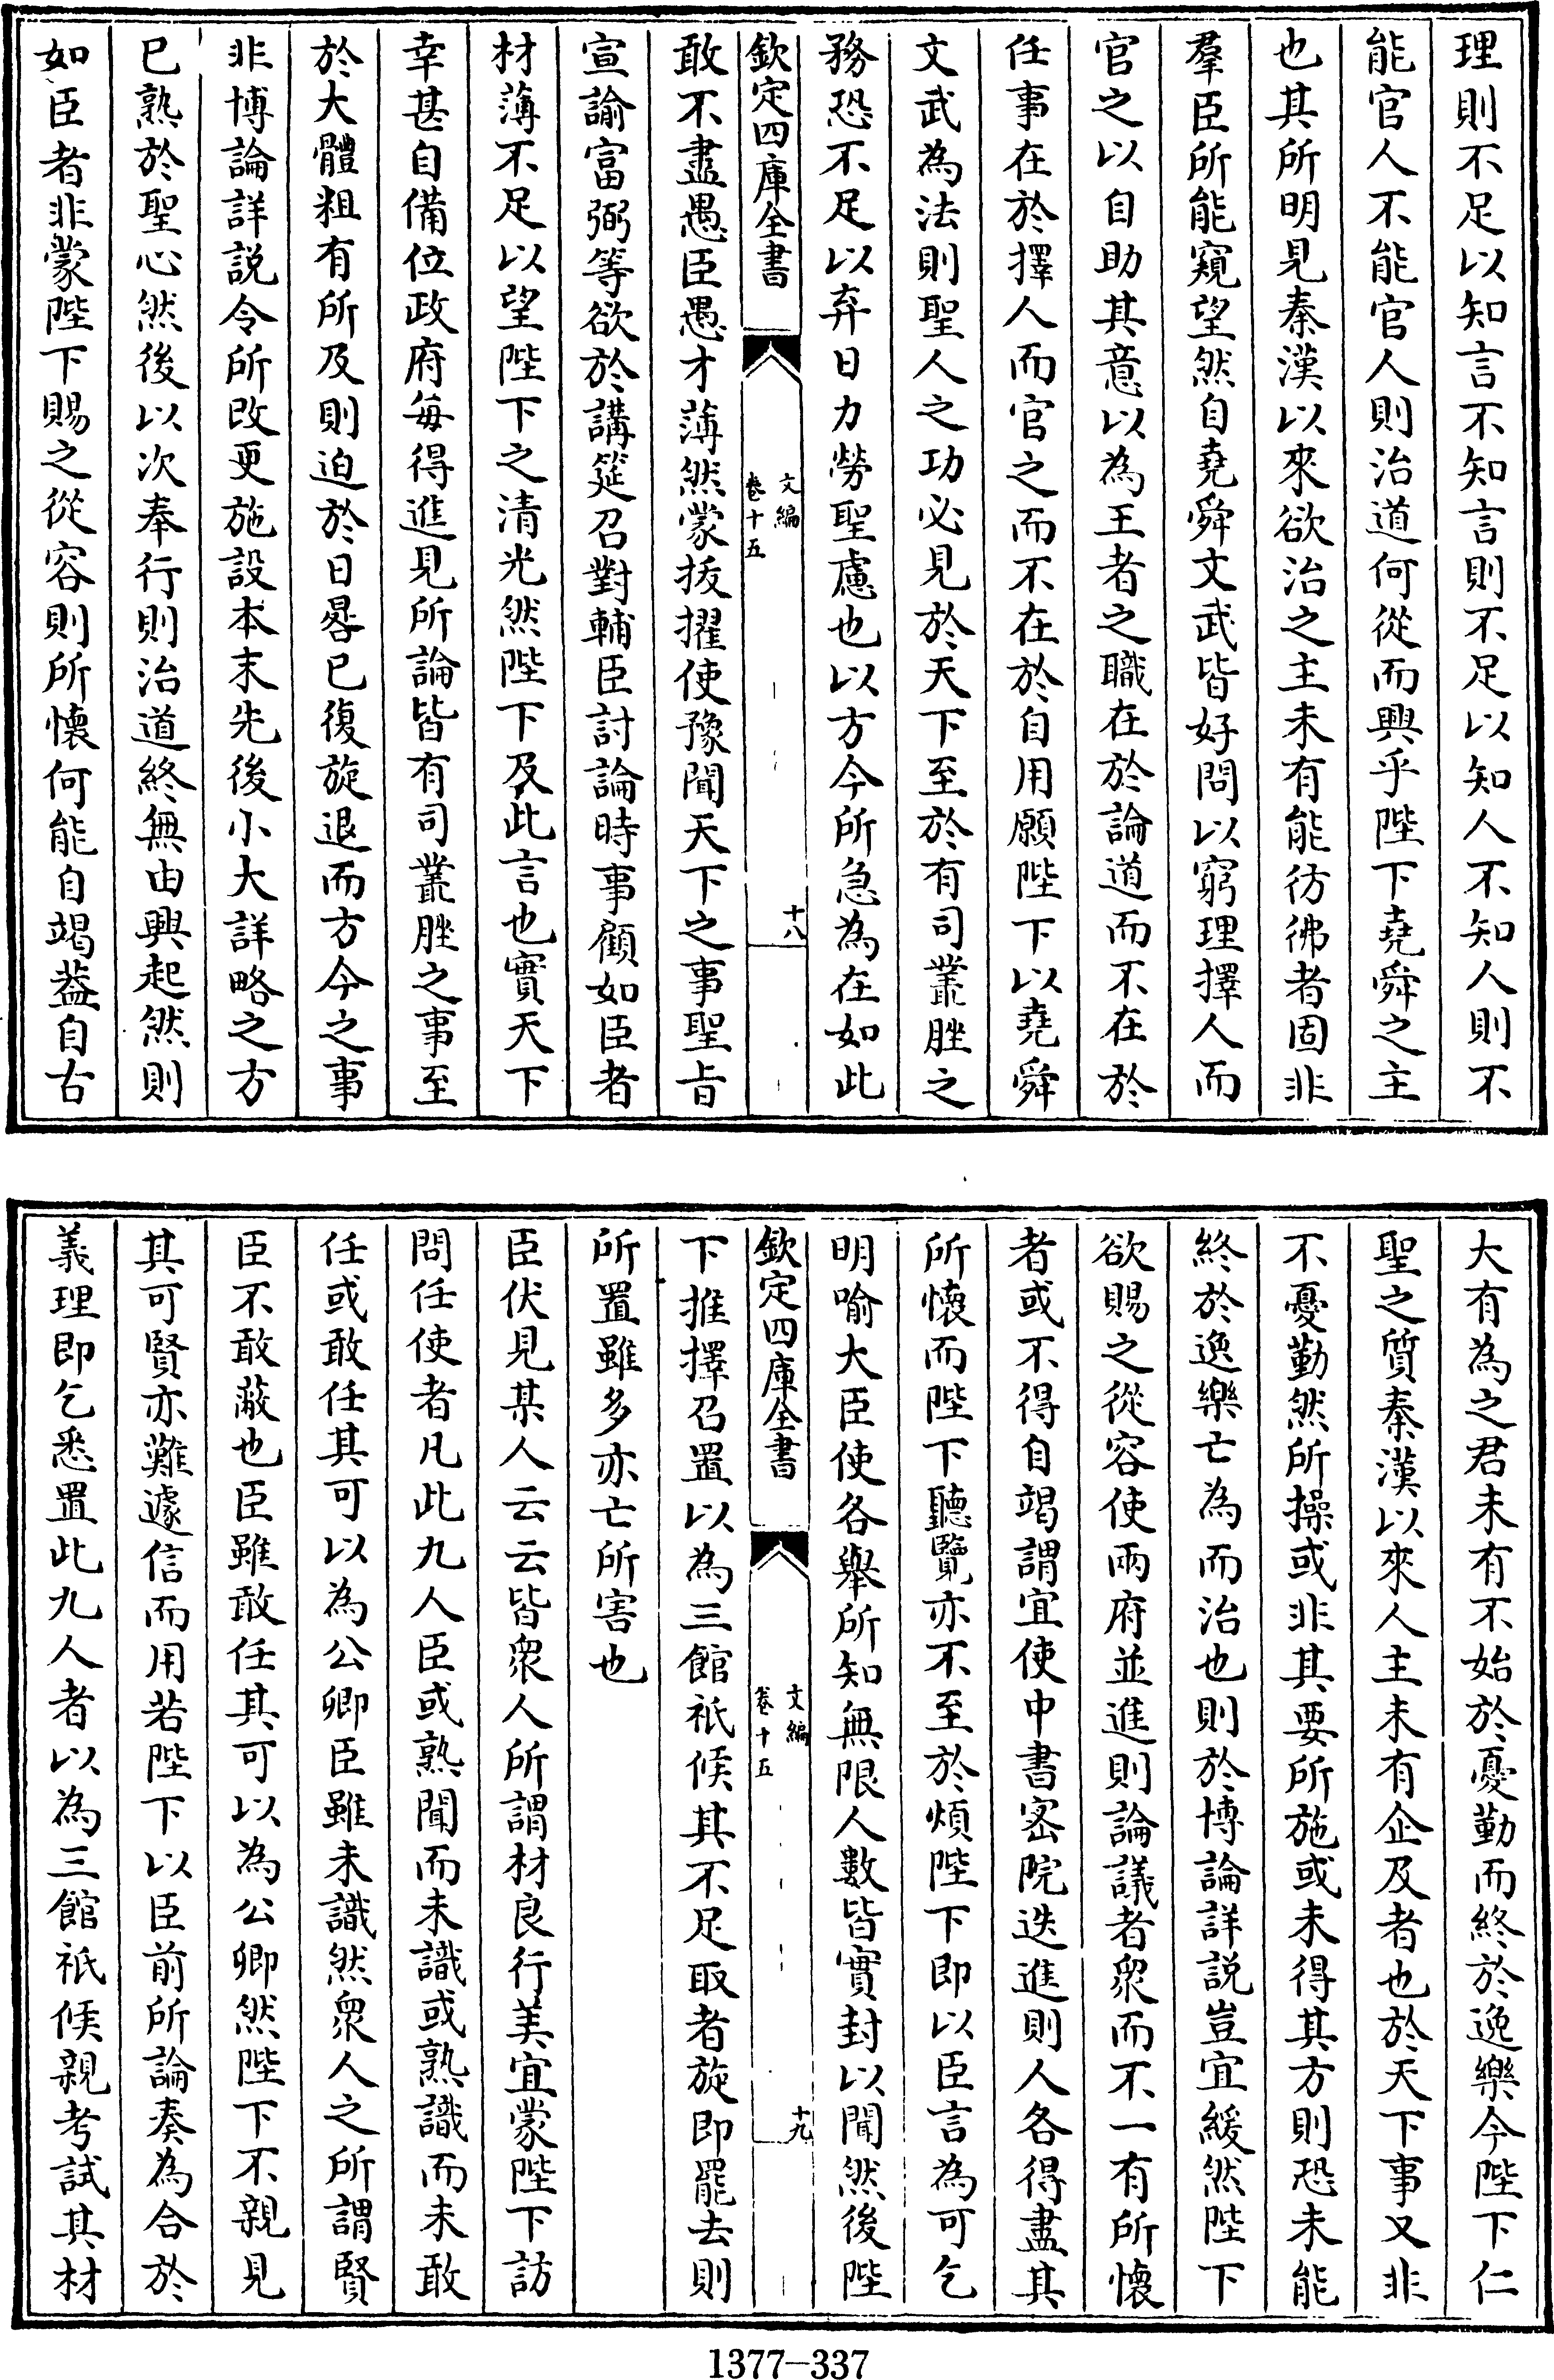 理則不足以知言不知言則不足以知人不知人則不
能官人不能官人則治道何從而興乎陛下堯舜之主
也其所明見秦漢以來欲治之主未有能彷彿者固非
羣臣所能窺望然自堯舜文武皆好問以窮理擇人而
官之以自助其意以為王者之職在於論道而不在於
任事在於擇人而官之而不在於自用願陛下以堯舜
文武為法則聖人之功必見於天下至於有司叢脞之
務恐不足以弃日力勞聖慮也以方今所急為在如此
欽定四庫全書
文編
卷十五
十八
敢不盡愚臣愚才薄然蒙拔擢使豫聞天下之事聖旨
宣諭富弼等欲於講筵召對輔臣討論時事顧如臣者
材薄不足以望陛下之清光然陛下及此言也實天下
幸甚自備位政府每得進見所論皆有司叢脞之事至
於大體粗有所及則迫於日晷已復旋退而方今之事
非博論詳説令所改更施設本末先後小大詳略之方
已熟於聖心然後以次奉行則治道終無由興起然則
如臣者非蒙陛下賜之從容則所懷何能自竭葢自古
大有為之君未有不始於憂勤而終於逸樂今陛下仁
聖之質秦漢以來人主未有企及者也於天下事又非
不憂勤然所操或非其要所施或未得其方則恐未能
終於逸樂亡為而治也則於博論詳説豈宜緩然陛下
欲賜之從容使兩府並進則論議者衆而不一有所懷
者或不得自竭謂宜使中書宻院迭進則人各得盡其
所懷而陛下聽覽亦不至於煩陛下即以臣言為可乞
明喻大臣使各舉所知無限人數皆實封以聞然後陛
欽定四庫全書
文編
卷十五
十九
下推擇召置以為三館祇候其不足取者旋即罷去則
所置雖多亦亡所害也
臣伏見某人云云皆衆人所謂材良行美宜蒙陛下訪
問任使者凡此九人臣或熟聞而未識或熟識而未敢
任或敢任其可以為公卿臣雖未識然衆人之所謂賢
臣不敢蔽也臣雖敢任其可以為公卿然陛下不親見
其可賢亦難遽信而用若陛下以臣前所論奏為合於
義理即乞悉置此九人者以為三館祇候親考試其材
1377-337